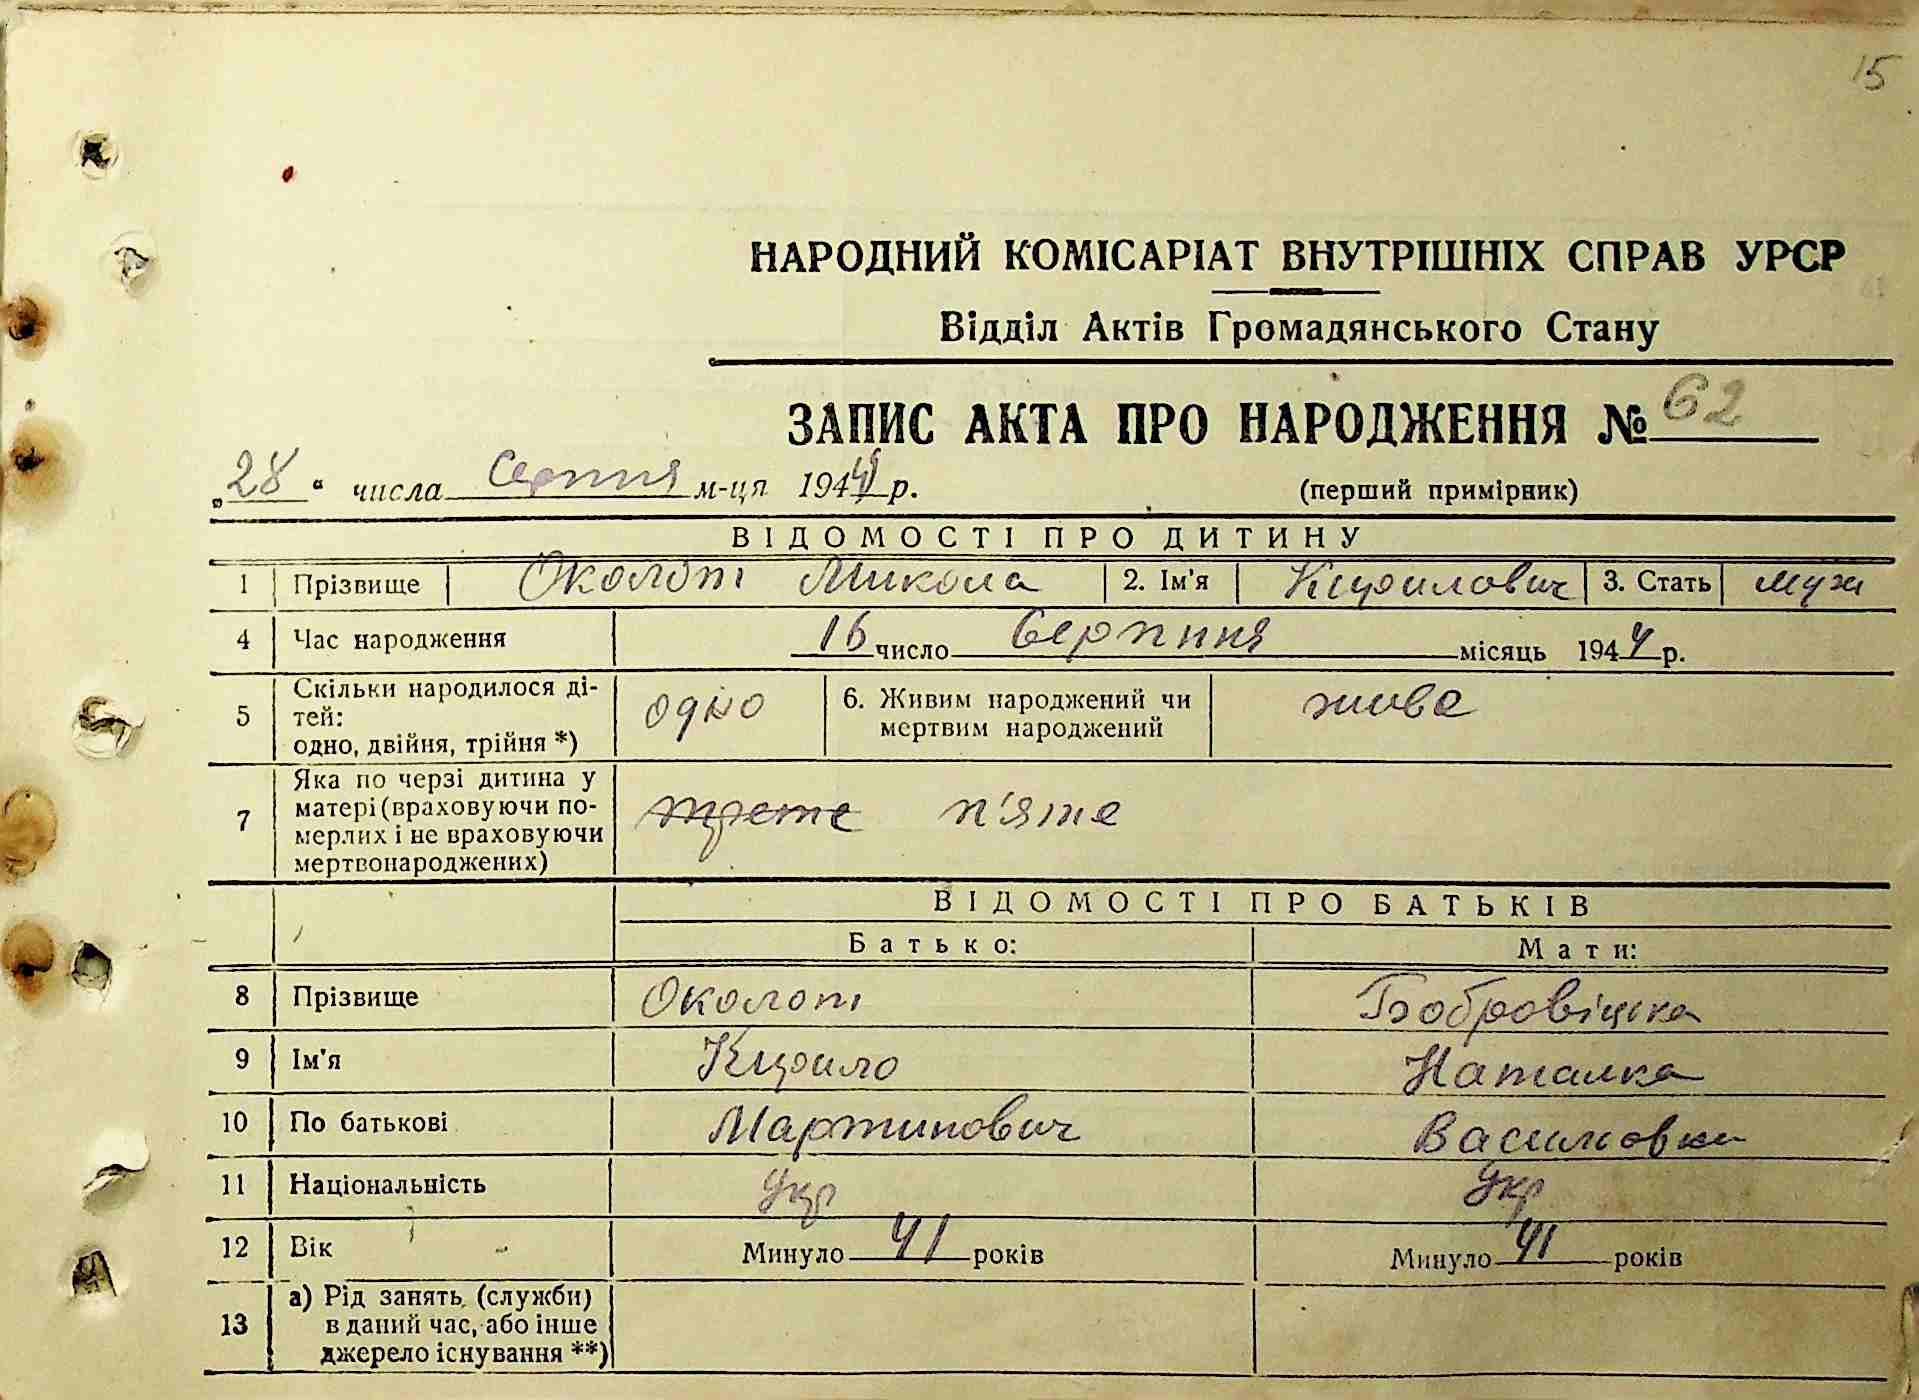 15
НАРОДНИЙ КОМІСАРІАТ ВНУТРІШНІХ СПРАВ УРСР
Відділ Актів Громадянського Стану
ЗАПИС АКТА ПРО НАРОДЖЕННЯ № 62
„28“ числа Серпня м-ця 1944 р. (перший примірник)
ВІДОМОСТІ ПРО ДИТИНУ
1 Прізвище Околот Микола 2. Ім'я Кирилович 3. Стать муж
4 Час народження 16 число Серпння місяць 1944 р.
5 Скільки народилося ді-
тей:
одно, двійня, трійня *) одно 6. Живим народжений чи
мертвим народжений живе
7 Яка по черзі дитина у
матері (враховуючи по-
мерлих і не враховуючи
мертвонароджених) трете п'яте
ВІДОМОСТІ ПРО БАТЬКІВ
Батько: Мати:
8 Прізвище Околот Бобровіцка
9 Ім'я Кирило Наталка
10 По батькові Мартинович Василовна
11 Національність Укр Укр
12 Вік Минуло 41 років Минуло 41 років
13 а) Рід занять, (служби)
в даний час, або інше
джерело існування **)